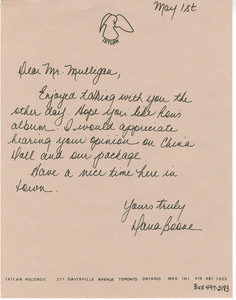 May 1st
IXTLAN
Dear Mr. Mulligan,
Enjoyed talking with you the
other day. Hope you like Ron's
album. I would appreciate
hearing your opinion on China
Hall and our package.
Have a nice time here in
town.
Yours truly
Dana Boone
IXTLAN RECORDS 271 DAVISVILLE AVENUE TORONTO ONTARIO M4S 1H1 416 481 1320
Bus 497-2193